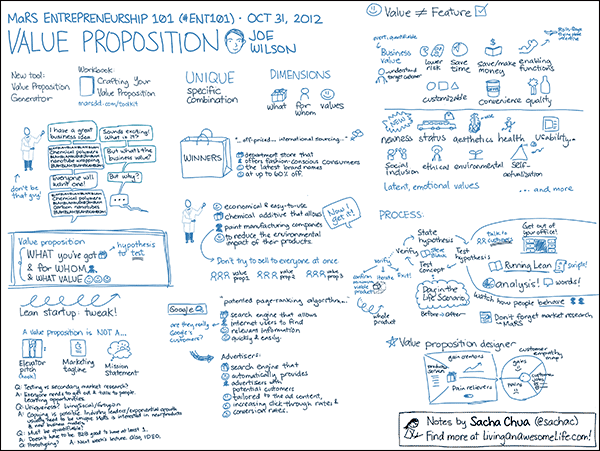 MaRS ENTREPRENEURSHIP 101 (#ENT101) • OCT 31, 2012
VALUE PROPOSITION
JOE
WILSON
New tool:
Value Proposition
Generator
Workbook:
Crafting Your
Value Proposition
marsdd.com/toolkit
I have a great
business idea
Sounds exciting!
What is it?
Chemical polymers
But what's the
business value?
Everyone will
want one!
But why?
Chemical polymers
carbon nanotubes
don't be
that guy!
Value proposition
WHAT you've got
& for WHOM
& WHAT VALUE
hypothesis
to test
Lean startup: tweak!
A value proposition is NOT A...
Elevator
pitch
(hook)
Marketing
tagline
Mission
Statement
Q: Testing is secondary market research?
A: Everyone needs to get out & talk to people.
Learning opportunities.
A: Copying is possible. Industry leaders/exponential growth
Q: Must be quantifiable?
A: Doesn't have to be. B2B good to have at least 1.
Q: Prototyping?
A: Next week's lecture. Also, IDEO.
UNIQUE
specific
combination
DIMENSIONS
what
for
whom
values
WINNERS
"...off-priced... international sourcing..."
department store that
offers fashion-conscious consumers
the latest brand names
at up to 60% off.
economical & easy-to-use
chemical additive that allows
paint manufacturing companies
to reduce the environmental
impact of their products.
Now I
get it!
Don't try to sell to everyone at once
value
prop 1
value
prop 2
value
prop 3
Google
are they really
Google's
customers?
"patented page-ranking algorithm..."
search engine that allows
internet users to find
relevant information
quickly & easily.
Advertisers:
search engine that
automatically provides
advertisers with
potential customers
tailored to the ad content,
increasing click-through rates &
conversion rates.
Value ≠ Feature
overt, quantifiable
Business
value
understand
target customer
lower
risk
save
time
save/make
money
enabling
functions
customizable
convenience
quality
NEW
newness
status
aesthetics
health
usability...
social
inclusion
ethical
environmental
self-
actualization
Latent, emotional values
... and more
PROCESS:
State
hypothesis
Verify
Test
concept
Test
hypothesis
verify
confirm
iterate
Pivot!
viable
product
whole
product
Day in the
Life Scenario
Before → After
Talk to
customers
Get out of
your office!
Running Lean
scripts!
analysis!
words!
watch how people behave
Don't forget market research
MaRS
Value proposition designer
gain creators
products
services
Pain relievers
gains
pains
customer
jobs
customer
empathy
map
Notes by Sacha Chua (@sachac)
Find more at LivingAnAwesomeLife.com!